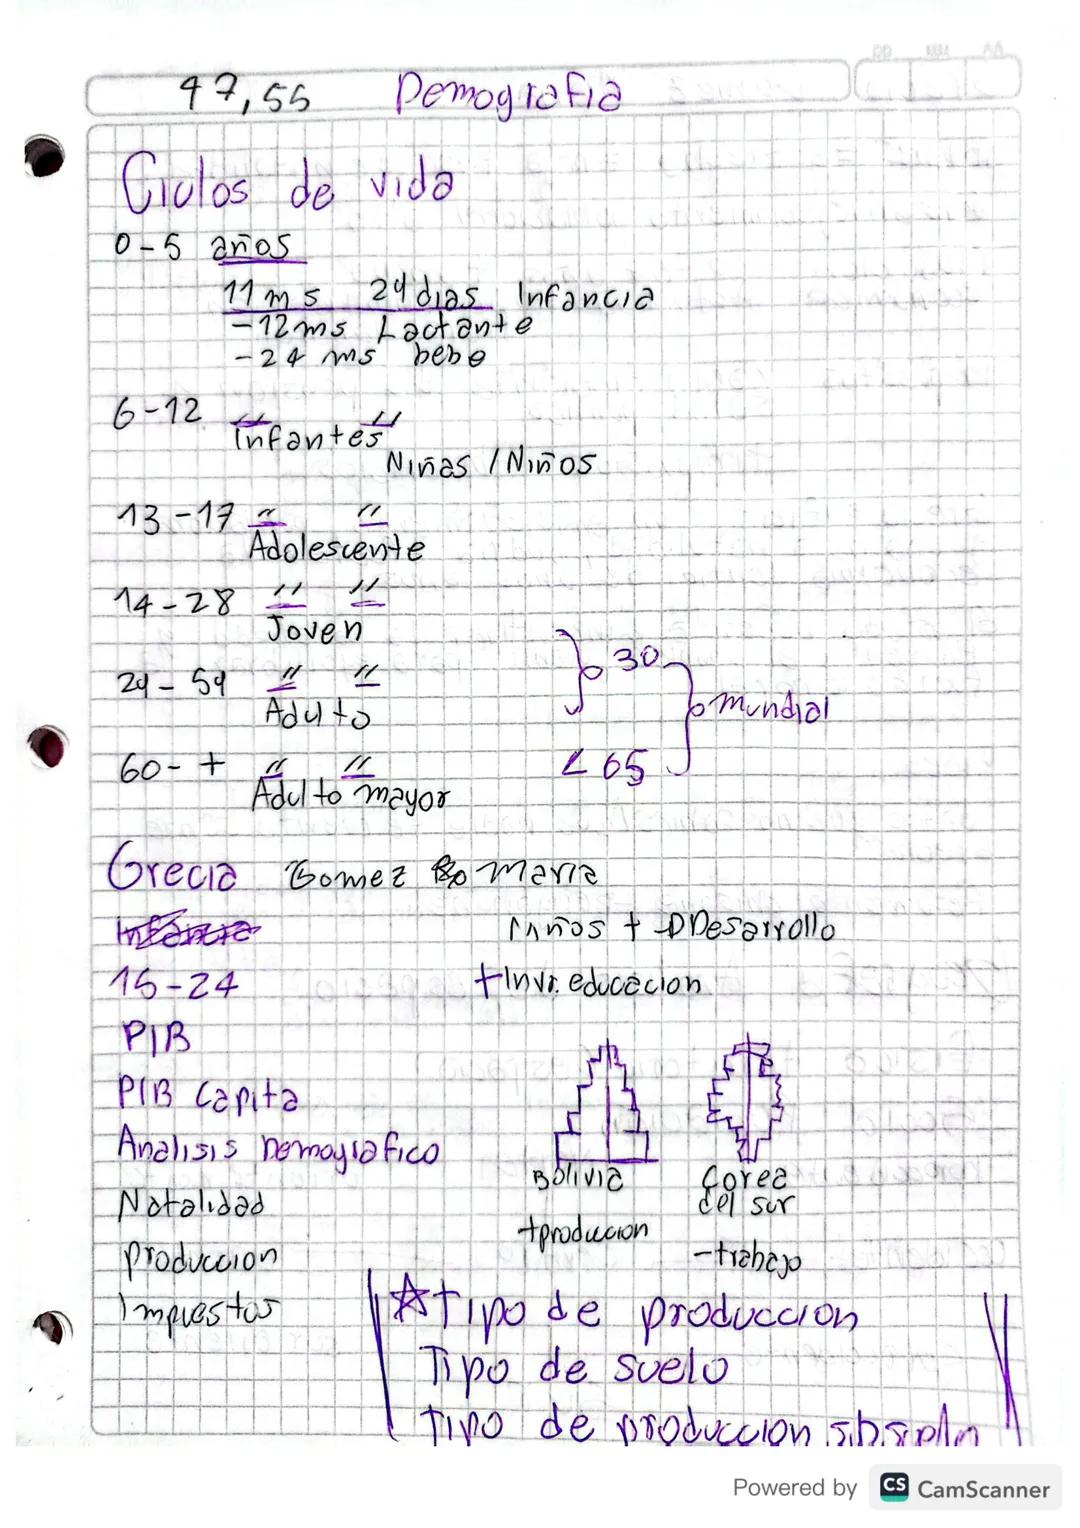 47,55 Demografia
Ciclos de vida
0-5 años
11 ms 29 dias Infancia
-12 ms Lactante
-24 ms bebe
6-12 " "
Infantes
Niñas / Niños
13-17 " "
Adolescente
14-28 " "
Joven
29-59 " "
Adulto
30
mundial
60- + " "
Adulto mayor
< 65
Grecia Gomez Maria
Infancia
Niños + Desarrollo
15-24
+ Inv. educacion
PIB
PIB Capita
Analisis Demografico
Natalidad
produccion
Impuestos
Bolivia
+producion
Corea
del sur
-trabajo
Tipo de produccion
Tipo de suelo
Tipo de produccion
Powered by CS CamScanner